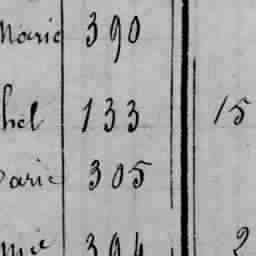 Marie 390
hel 133 15
Marie 305
mie 394 2